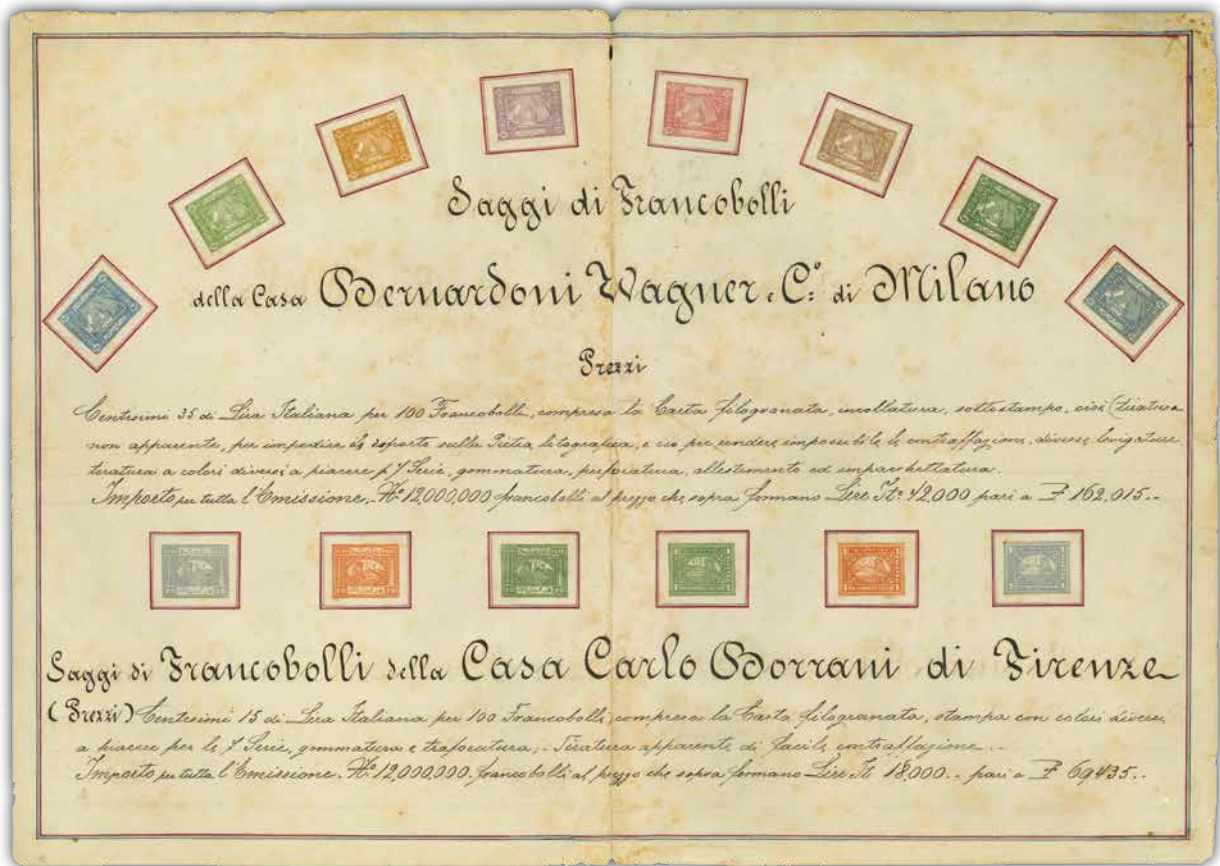 Saggi di Francobolli
della Casa Bernardoni Wagner e C.º di Milano
Prezzi
Centesimi 35 di Lira Italiana per 100 Francobolli, compresa la Carta filogranata, incollatura, sottostampo, cioè (tiratura
non apparente, per impedire il riporto sulla Pietra litografica, e ciò per rendere impossibile le contraffazioni, diverse levigature
tiratura a colori diversi a piacere p. 7 Serie, gommatura, perforatura, allestimento ed impacchettatura.
Importo per tutta l'Emissione, Nº 12,000,000 francobolli al prezzo che sopra formano Lire Itº 42,000 pari a P. 162,015..
Saggi di Francobolli della Casa Carlo Borrani di Firenze
(Prezzi) Centesimi 15 di Lira Italiana per 100 Francobolli, compresa la Carta filogranata, stampa con colori diversi
a piacere per le 7 Serie, gommatura e traforatura; - Tiratura apparente di facile contraffazione..
Importo per tutta l'Emissione. Nº 12,000,000. francobolli al prezzo che sopra formano Lire It 18,000.. pari a P 69435..